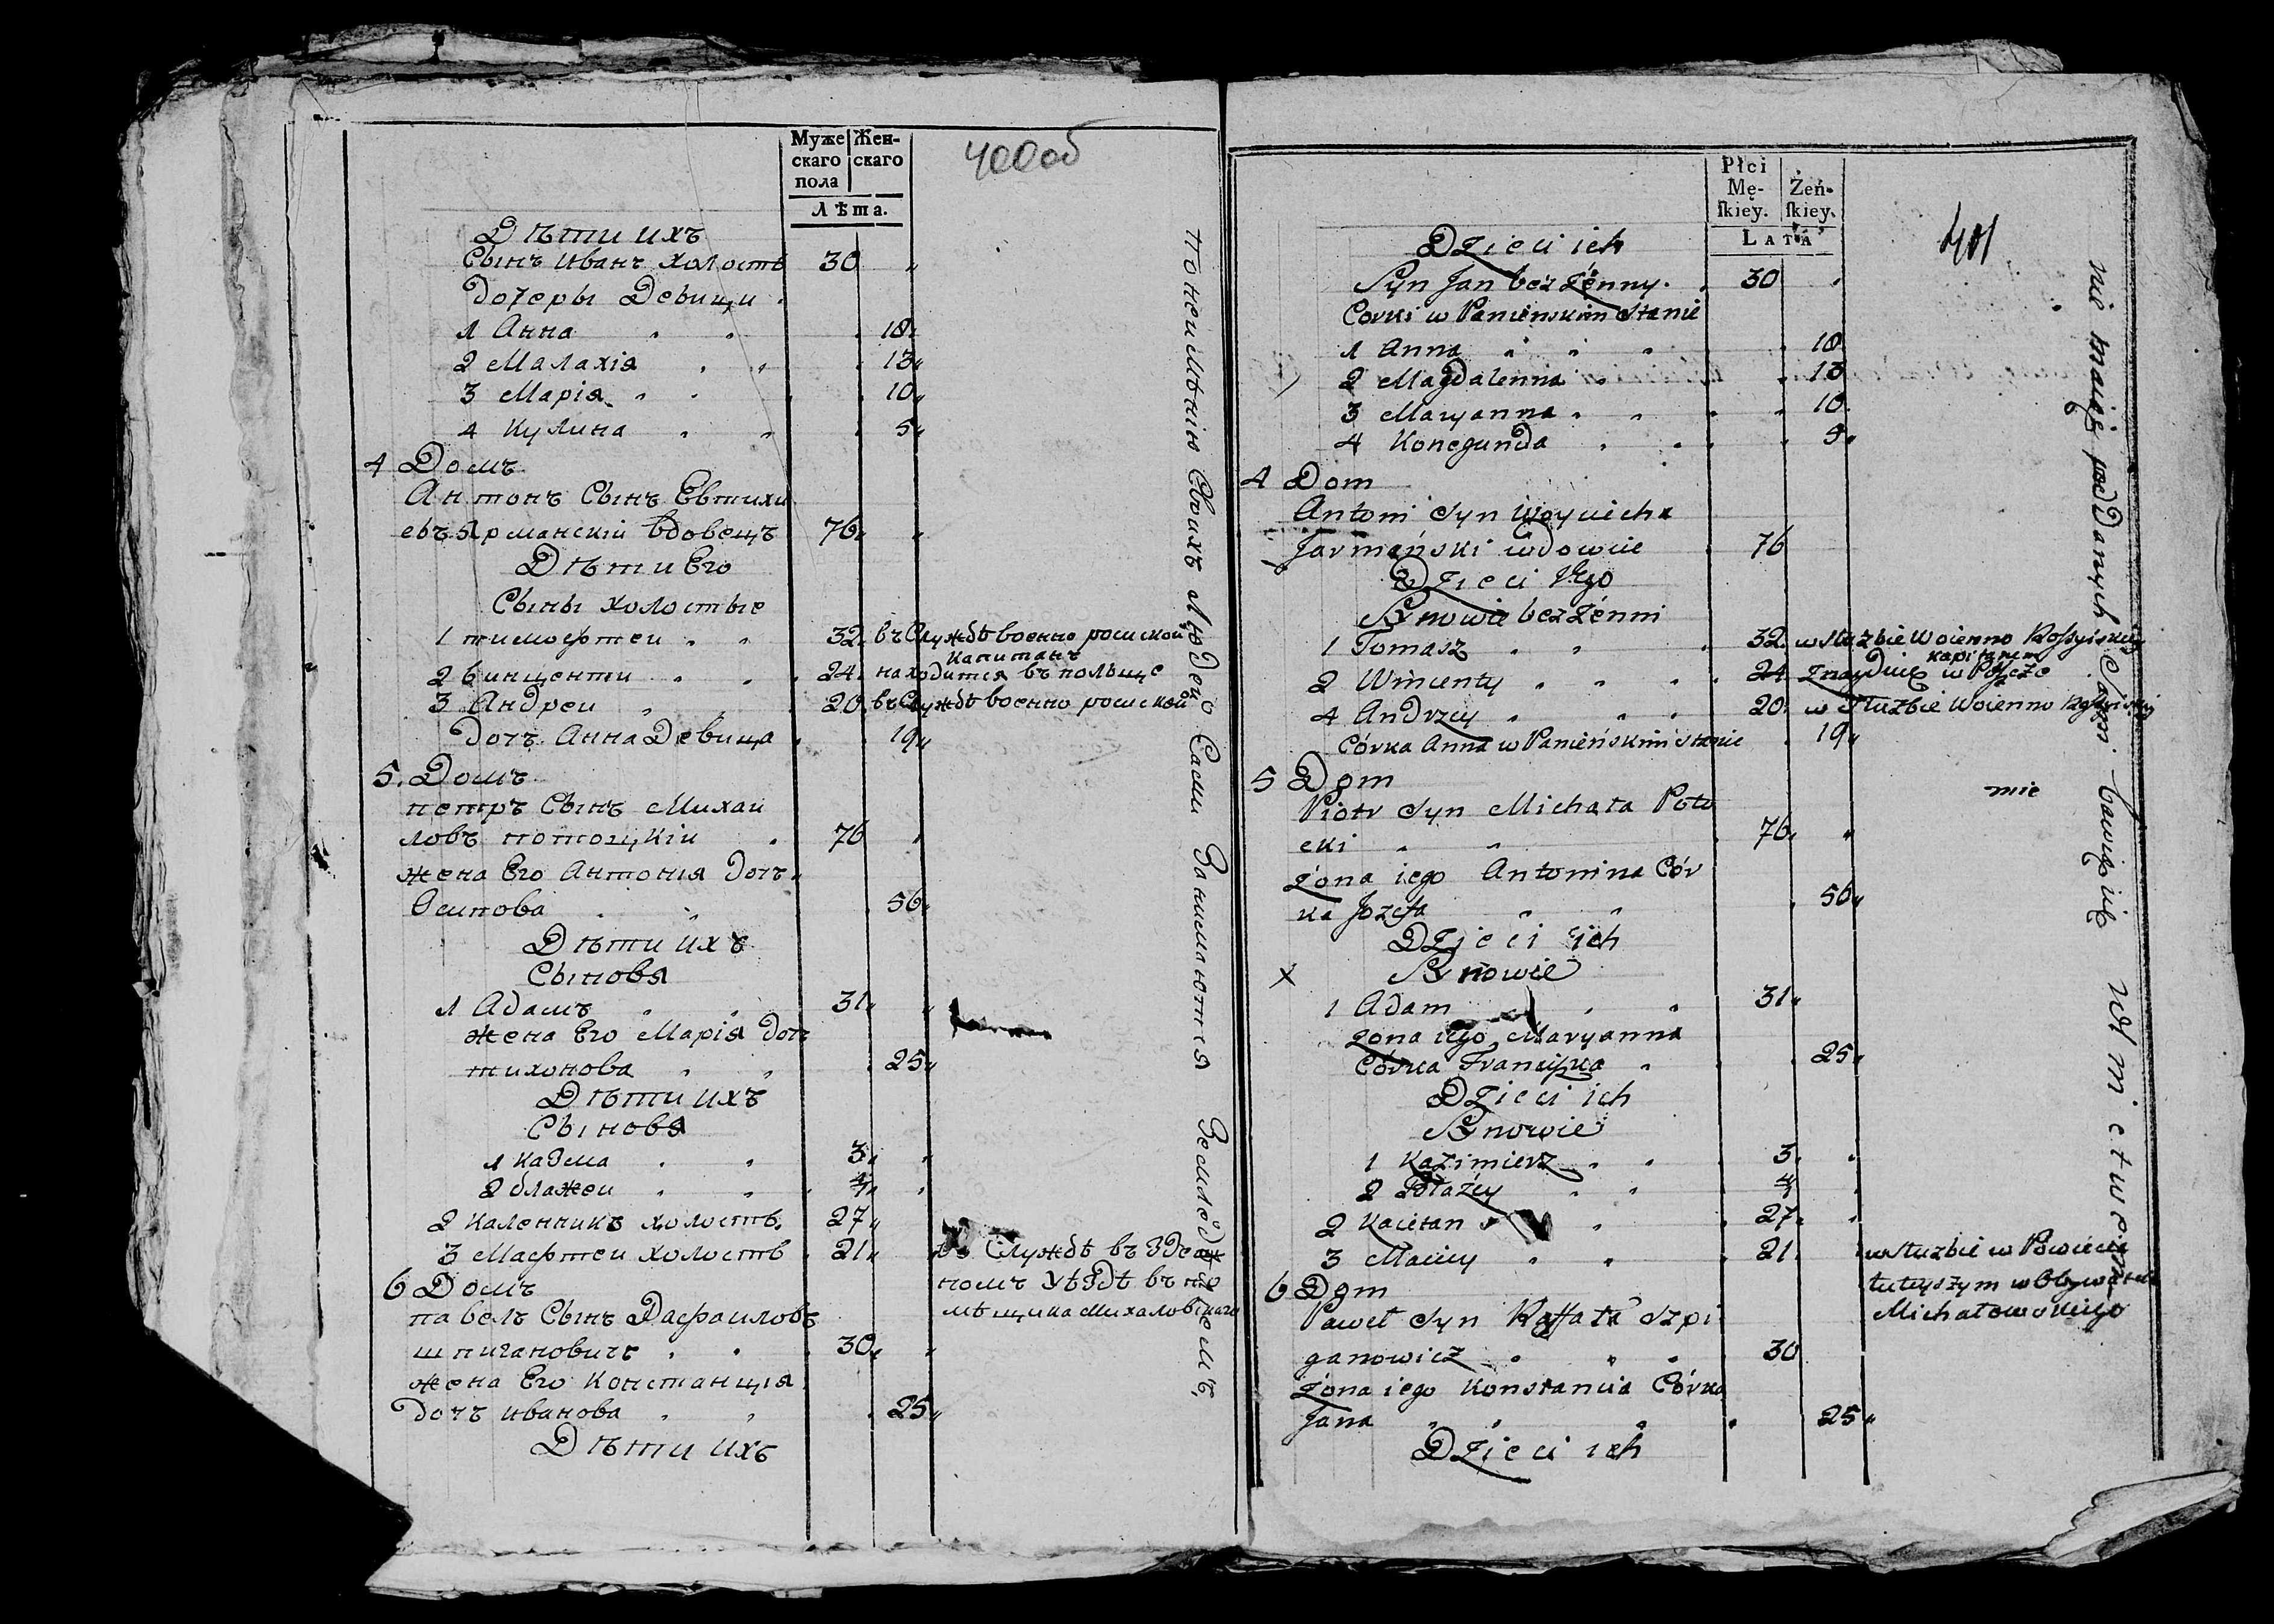 Муже Жен-
скаго скаго
пола
Лѣта.
400об
Дѣти ихъ
Сынъ Иванъ холостъ 30 "
дочеры Девици
1 Анна 18
2 Малахія 13
3 Марія 10
4 Кулина 5
4 Домъ
Антонъ Сынъ Евтихи
евъ Ярманскій вдовецъ 76 "
Дѣти Его
Сыны холостые
1 тимофтеи 32 въ Службѣ военно росиской
капитанъ
2 винценти 24 находится въ польще
3 Андреи 20 въ Службѣ военно росиской
дочъ Анна Девица 19
5. Домъ
петръ Сынъ Михаи
ловъ потоцкіи 76 "
жена Его Антонія дочъ
Осипова 56
Дѣти ихъ
Сыновя
1 Адамъ 31 "
жена Его Марія дочъ
тихонова 25
Дѣти ихъ
Сыновя
1 казма 3 "
2 блажеи "
2 Каленникъ холостъ 27
3 Мафтеи холостъ 21 въ Службѣ въ Здеш
номъ уѣздѣ въ по
6 Домъ
мѣщика Михаловскаго
павелъ Сынъ Рафаиловъ
шпигановичъ 30 "
жена Его Констанція
дочъ иванова 25
Дѣти ихъ
по неимѣнію Своихъ Людей Сами Занимаются Земледѣлиемъ
Płci
Mę- Żeń-
ſkiey. ſkiey.
LATA
401
Dzieci ich
Syn Jan bezżenny 30 "
Corki w Panienskim Stanie
1 Anna 18
2 Magdalenna 13
3 Maryanna 10
4 Konegunda 5
4 Dom
Antoni Syn Woyciecha
Jarmański wdowiec 76
Dzieci Jego
Synowie bezżenni
1 Tomasz 32 w służbie Woienno Rossyiskiey
kapitanem
2 Wincenty 24 znayduie w Polszcze
4 Andrzey 20 w Służbie Woienno Rossyiskiey
Córka Anna w Panieńskim stanie 19
5 Dom
mie
Piotr Syn Michała Poto
cki 76 "
żona iego Antonina Cór
ka Jozefa 56
Dzieci ich
X Synowie
1 Adam 31
żona iego Maryanna
Córka Franciszka 25
Dzieci ich
Synowie
1 Kazimierz 3 "
2 Błażey
2 Kaietan 27 "
3 Maciey 21 w służbie w Powiecie
tuteyszym w Obywatela
6 Dom
Michałowskiego
Paweł Syn Raffała Szpi
ganowicz 30
żona iego Konstancia Córka
Jana 25
Dzieci ich
nie maiąc poddanych Sami bawią się